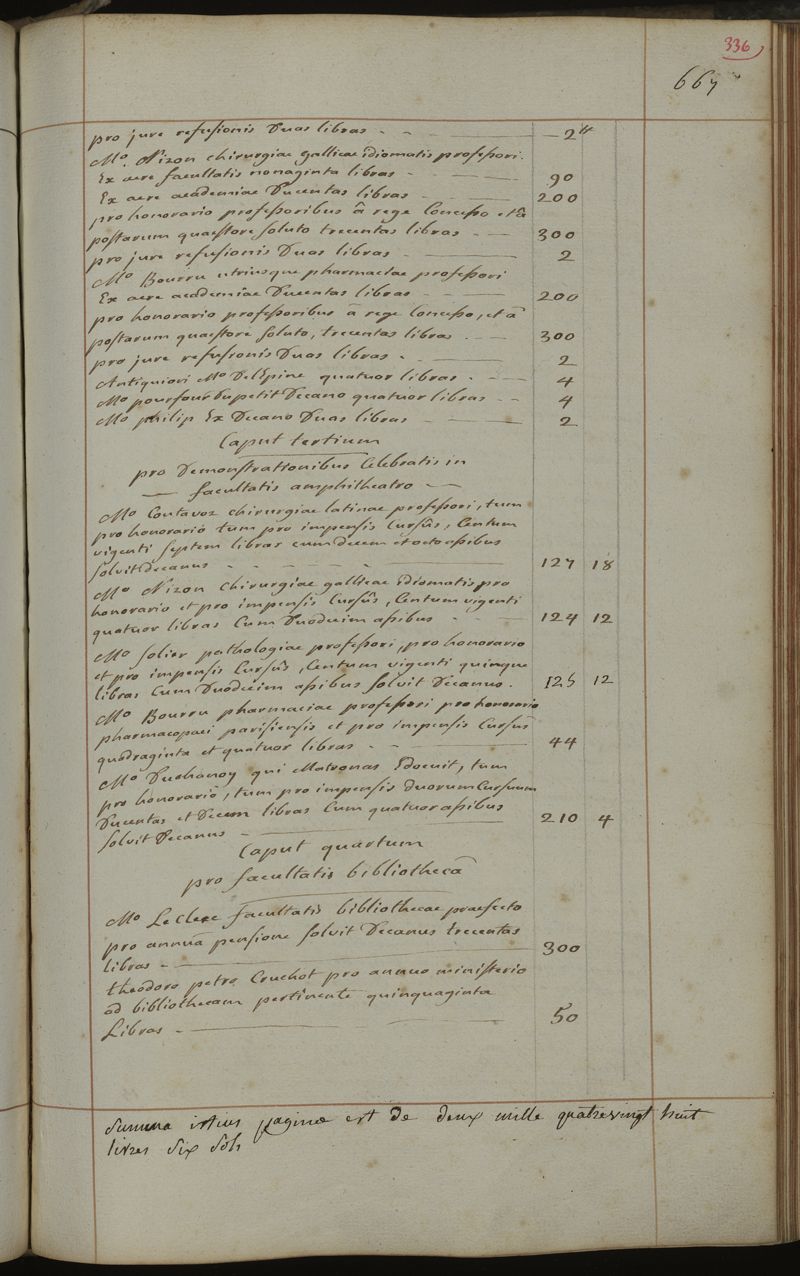 336
667
pro jure refusionis Duas libras - - 2 ll
Mo. Nizon chirurgiae gallicae idiomatis professori.
Ex aere facultatis nonaginta libras - 90
Ex aere academiae Ducentas libras - 200
pro honorario professoribus â rege Concesso et â
postarum quaestore soluto trecentas libras - 300
pro jure refusionis Duas libras - 2
Mo Bourru utriusque pharmaciae professori
Ex aere academiae Ducentas libras - 200
pro honorario professoribus â rege Concesso, et â
postarum quaestore soluto, trecentas libras - 300
pro jure refusionis Duas libras - 2
Antiquiori Mo Delépine quatuor libras - 4
Mo pourfour Dupetit Decano quatuor libras - 4
Mo philip Ex Decano Duas libras - 2
Caput tertium
pro Demonstrationibus Celebratis in
facultatis amphitheatro
Mo Contavoz chirurgiae latinae professori, tum
pro honorario tum pro impensis Cursûs, Centum
viginti septem libras cum decem et octo assibus
solvit Decanus - 127 18
Mo Nizon chirurgiae gallicae idiomatis pro
honorario et pro impensis Cursûs, Centum viginti
quatuor libras Cum Duodecim assibus - 124 12
Mo Solier pathologiae professori, pro honorario
et pro impensis Cursûs, Centum viginti quinque
libras Cum Duodecim assibus solvit Decanus. 125 12
Mo Bourru pharmaciae professori pro honorario
pharmacopaei parisiensis et pro impensis Cursûs
quadraginta et quatuor libras - 44
Mo Duchanoy qui Matronas Edocuit, tum
pro honorario, tum pro impensis duorum Cursuum
Ducentas et Decem libras Cum quatuor assibus
solvit Decanus - 210 4
Caput quartum
pro facultatis bibliothecâ
Mo Le Clerc facultatis bibliothecae praefecto
pro annuâ pensione solvit Decanus trecentas
libras - 300
theodoro petro Cruchot pro annuo ministerio
ad bibliothecam pertinente quinquaginta
Libras - 50
Summa istius paginae est de deux mille quatrevingt huit
livres six sols